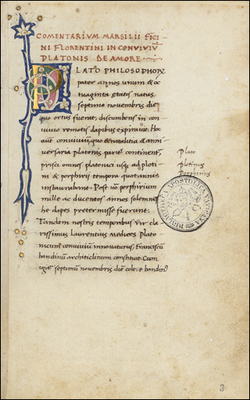 COMENTARIVM MARSILII FICI
NI FLORENTINI IN CONVIVIV
PLATONIS DE AMORE
PLATO PHILOSOPHOR
pater annos unum & oc
tuaginta etatis natus
septimo novembris die
quo ortus fuerat, discumbens in con
vivio remotis dapibus expiravit. Hoc
autem convivium, quo et natalitia et anni
versaria platonis pariter continentur,
prisci omnes platonici usque ad plotini
& porphirii tempora quotannis
instaurabant. Post vero porphirium
mille ac ducentos annos solemnes
he dapes pretermisse fuerunt.
Tandem nostris temporibus vir cla
rissimus Laurentius medices plato
nicum convivium innovaturus, franciscum
bandinum architriclinum constituit. Cum
septimum novembris diem colere bandinus
Plato
plotinus
Porphirius
3